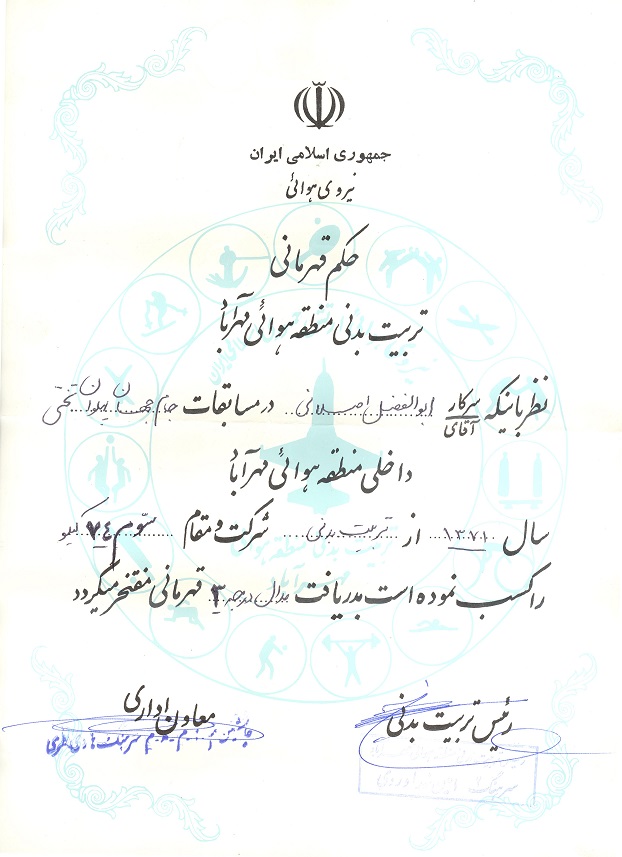 جمهوری اسلامی ایران
نیروی هوائی
حکم قهرمانی
تربیت بدنی منطقه هوائی مهرآباد
نظر باینکه سرکار آقای ابوالفضل اصلانی در مسابقات جام جهان پهلوان تختی
داخلی منطقه هوائی مهرآباد
سال ۱۳۷۱ از تربیت بدنی شرکت و مقام سوّم ۷٤ کیلو
را کسب نموده است بدریافت مدال درجه ۳ قهرمانی مفتخر میگردد
رئیس تربیت بدنی
معاون اداری
سرهنگ